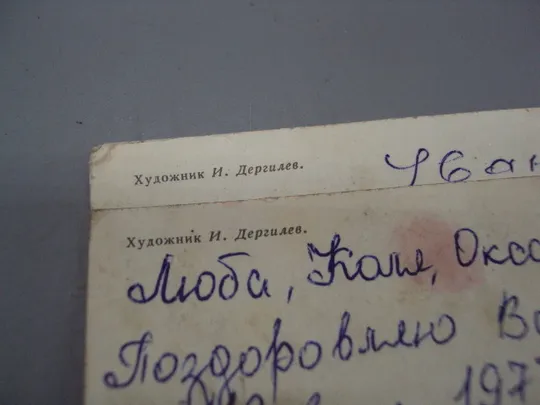 Художник И. Дергилев.
Художник И. Дергилев.
Люба, Коля,
Поздоровляю
197